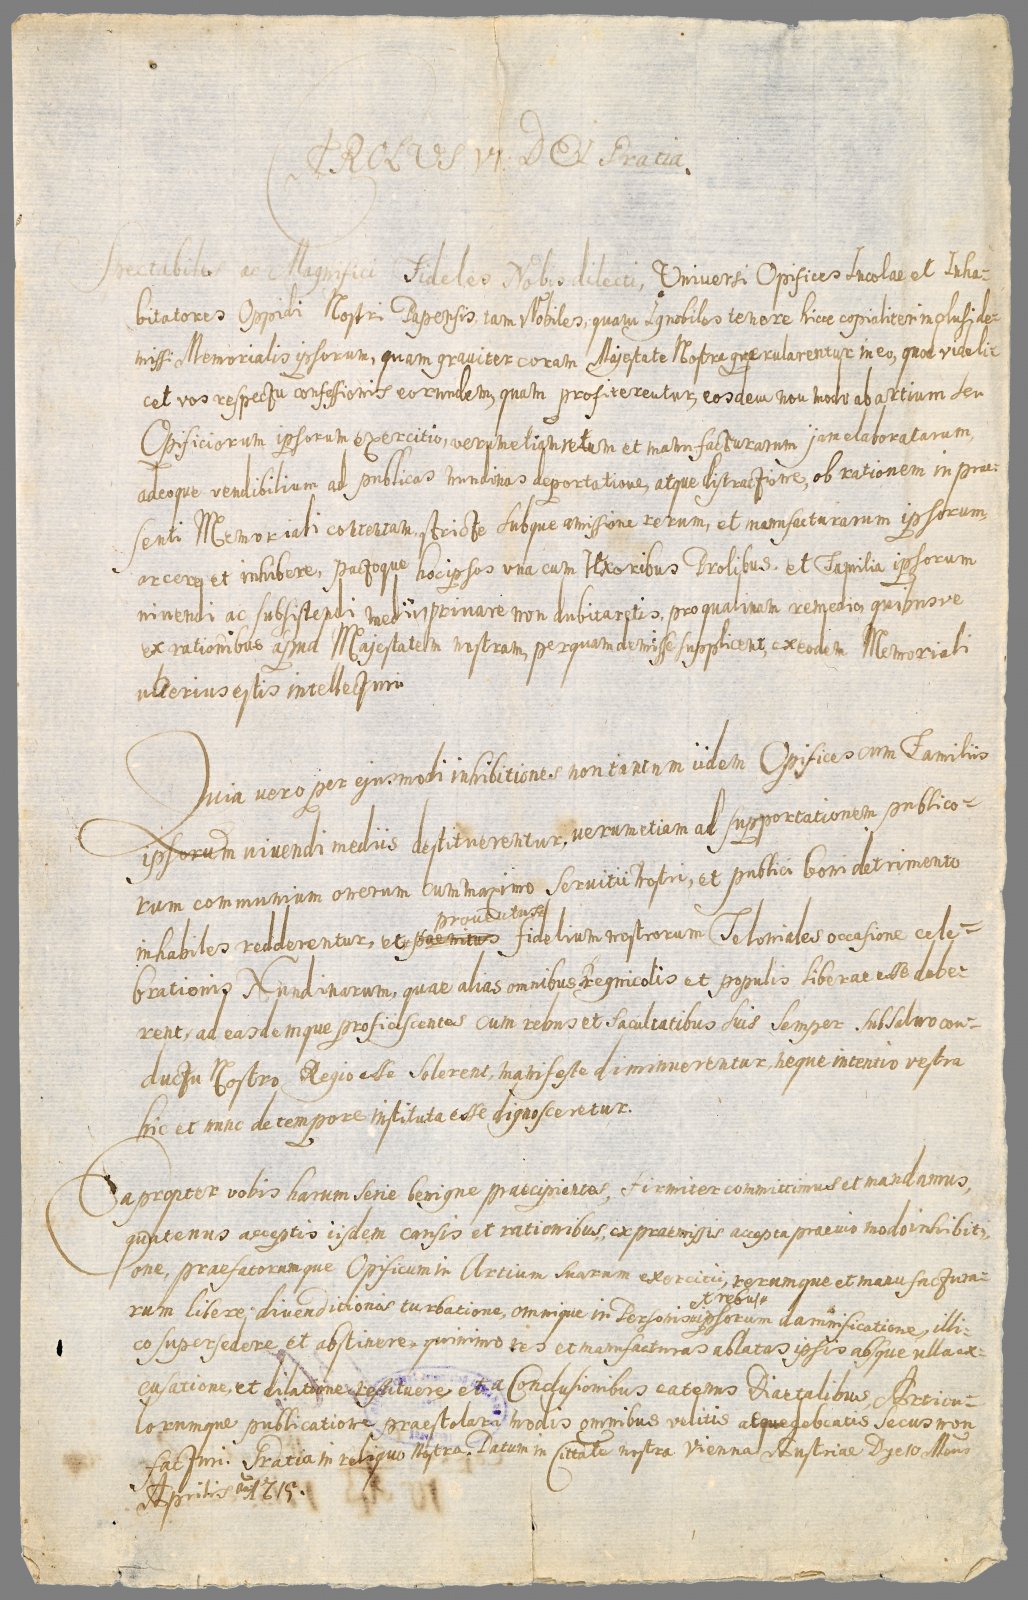 CAROLUS VI. DEI Gratia.
Spectabiles ac Magnifici Fideles Nobis dilecti, Universi Opifices Incolae et Inha-
bitatores Oppidi Nostri Papensis, tam Nobiles, quam Ignobiles tenore hicce copialiter inclusi de-
missi Memorialis ipsorum, quam graviter coram Majestate Nostra quaerularentur in eo, quod videli-
cet vos respectu confessionis eorundem, quam profiterentur, eosdem non modo ab artium seu
Opificiorum ipsorum exercitio, verum etiam rerum et manufacturarum jam elaboratarum,
adeoque vendibilium ad publicas nundinas deportatione, atque distractione, ob rationem in prae-
senti Memoriali contentam, stricte subque amissione rerum, et manufacturarum ipsorum,
arcere et inhibere, pactoque hoc ipsos una cum Uxoribus Prolibus et Familia ipsorum
vivendi ac subsistendi mediis privare non dubitaretis, pro qualinam remedio, quibusve
ex rationibus apud Majestatem nostram, perquam demisse supplicent, ex eodem Memoriali
ulterius estis intellecturi
Quia vero per ejusmodi inhibitiones non tantum iidem Opifices cum Familiis
ipsorum vivendi mediis destituerentur, verum etiam ad supportationem publico-
rum communium onerum cum maximo servitii nostri, et publici boni detrimento
inhabiles redderentur, et proventus fidelium nostrorum Teloniales occasione cele-
brationis Nundinarum, quae alias omnibus Regnicolis et populis liberae esse debe-
rent, ad easdemque proficiscentes cum rebus et facultatibus suis semper sub salvo con-
ductu Nostro Regio esse solerent, manifeste diminuerentur, neque intentio vestra
hic et nunc de tempore instituta esse dignosceretur.
Ea propter vobis harum serie benigne praecipientes, firmiter committimus et mandamus,
quatenus acceptis iisdem causis et rationibus, ex praemissis accepta praevio modo inhibiti-
one, praefatorumque Opificum in Artium suarum exercitii, rerumque et manufactura-
rum libere divenditionis turbatione, omnique in Personis et rebus ipsorum damnificatione, illi-
co supersedere et abstinere, quinimo res et manufacturas ablatas ipsis absque ulla ex-
cusatione, et dilatione restituere, et a Conclusionibus eatenus Diaetalibus, Articu-
lorumque publicatione praestolari modis omnibus velitis atque debeatis, secus non
facturi. Gratia in reliquo Nostra. Datum in Civitate nostra Vienna Austriae Die 10 Mens
Aprilis 1715.